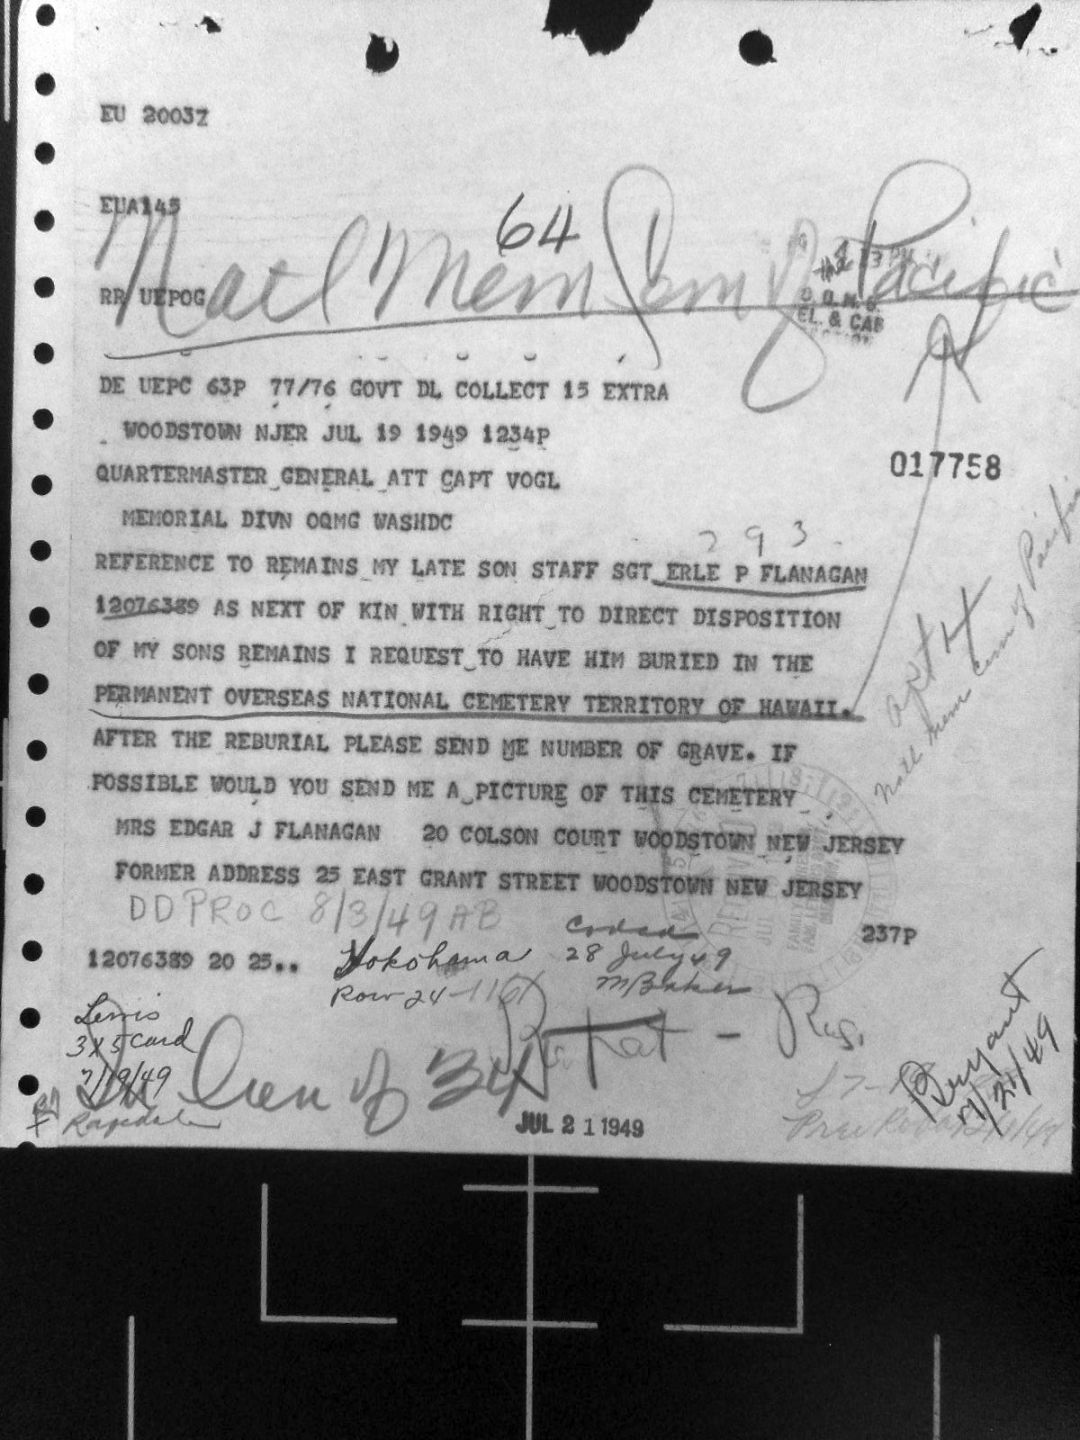 EU 20037
EUA145
64
Natl Mem Cem of Pacific
RR UEPOG
EL. & CAB
DE UEPC 63P 77/76 GOVT DL COLLECT 15 EXTRA
WOODSTOWN NJER JUL 19 1949 1234P
017758
QUARTERMASTER GENERAL ATT CAPT VOGL
MEMORIAL DIVN OQMG WASHDC
293
REFERENCE TO REMAINS MY LATE SON STAFF SGT ERLE P FLANAGAN
12076389 AS NEXT OF KIN WITH RIGHT TO DIRECT DISPOSITION
OF MY SONS REMAINS I REQUEST TO HAVE HIM BURIED IN THE
PERMANENT OVERSEAS NATIONAL CEMETERY TERRITORY OF HAWAII.
Natl Mem Cem of Pacific
AFTER THE REBURIAL PLEASE SEND ME NUMBER OF GRAVE. IF
POSSIBLE WOULD YOU SEND ME A PICTURE OF THIS CEMETERY
MRS EDGAR J FLANAGAN 20 COLSON COURT WOODSTOWN NEW JERSEY
FORMER ADDRESS 25 EAST GRANT STREET WOODSTOWN NEW JERSEY
RECEIVED
DD PROC 8/3/49 AB
237P
12076389 20 25..
Yokohama
Row 24-1161
Coded
28 July 49
M Baker
Lewis
3x5 Card
7/19/49
Ragsdale
In lieu of 345
Repat - Reg.
Bryant
7/21/49
JUL 21 1949